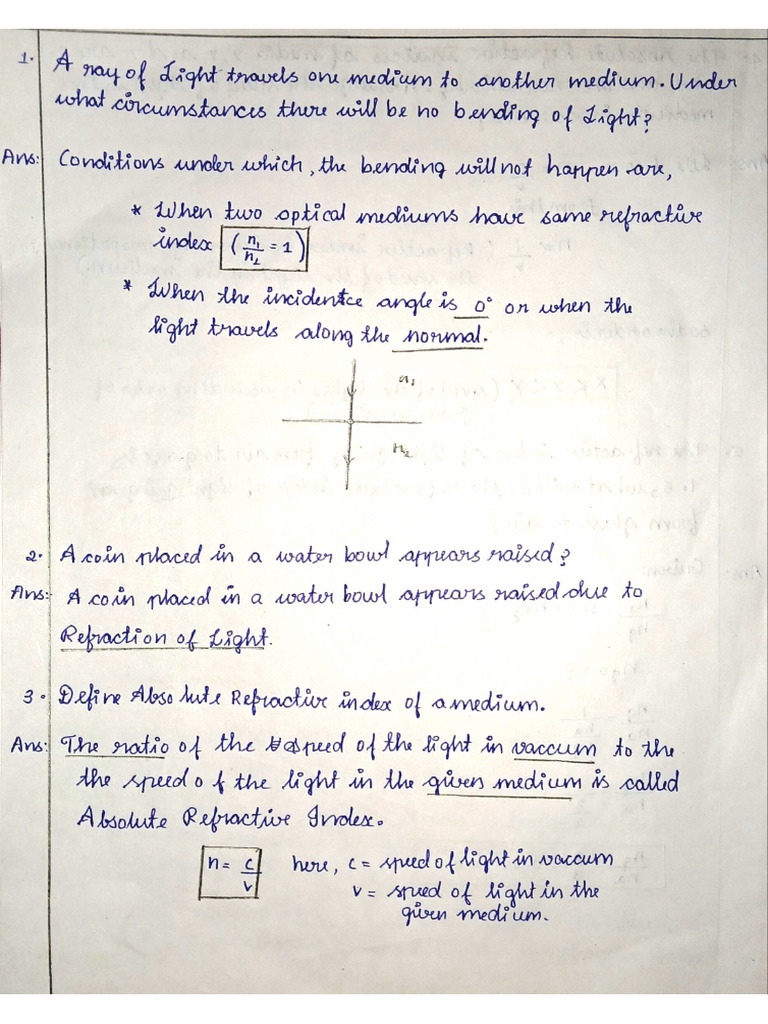 1. A ray of Light travels one medium to another medium. Under
what circumstances there will be no bending of Light?
Ans: Conditions under which, the bending will not happen are,
* When two optical mediums have same refractive
index (n₁/n₂ = 1)
* When the incidence angle is 0° or when the
light travels along the normal.
n₁
n₂
2. A coin placed in a water bowl appears raised?
Ans: A coin placed in a water bowl appears raised due to
Refraction of Light.
3. Define Absolute Refractive index of a medium.
Ans: The ratio of the speed of the light in vaccum to the
the speed of the light in the given medium is called
Absolute Refractive Index.
n = c/v here, c = speed of light in vaccum
v = speed of light in the
given medium.